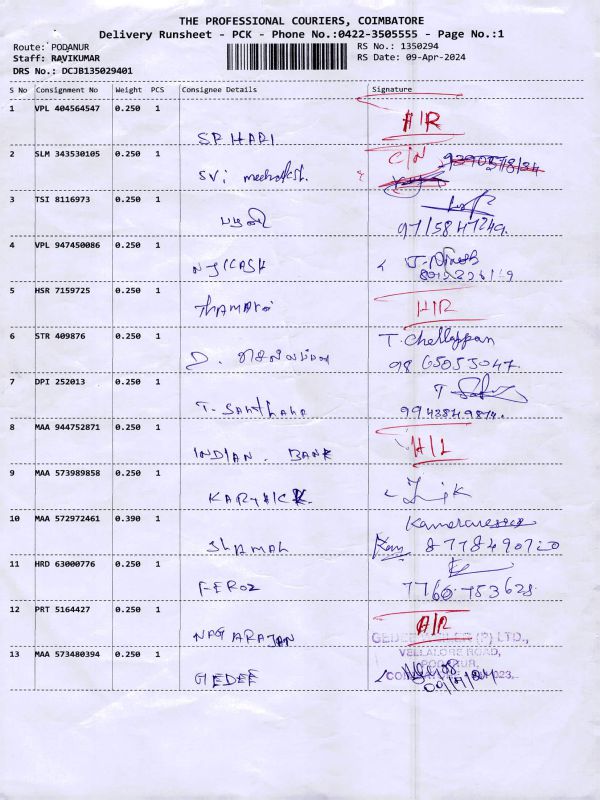 THE PROFESSIONAL COURIERS, COIMBATORE
Delivery Runsheet - PCK - Phone No.:0422-3505555 - Page No.:1
Route: PODANUR RS No.: 1350294
Staff: RAVIKUMAR RS Date: 09-Apr-2024
DRS No.: DCJB135029401
S No Consignment No Weight PCS Consignee Details Signature
1 VPL 404564547 0.250 1
SP HARI
2 SLM 343530105 0.250 1 C/N
SVi
3 TSI 8116973 0.250 1
பழனி 9715847249.
4 VPL 947450086 0.250 1
5 HSR 7159725 0.250 1
6 STR 409876 0.250 1 T. Chellappan
D. 9865055047.
7 DPI 252013 0.250 1 T
T. Santhana 9942849814.
8 MAA 944752871 0.250 1
INDIAN. BANK
9 MAA 573989858 0.250 1
KARTHICK.
10 MAA 572972461 0.390 1
SHAMAL 8778490720
11 HRD 63000776 0.250 1
FEROZ 7760753628
12 PRT 5164427 0.250 1
NAGARAJAN
(P) LTD.,
VELLALORE ROAD,
13 MAA 573480394 0.250 1
GEDEE